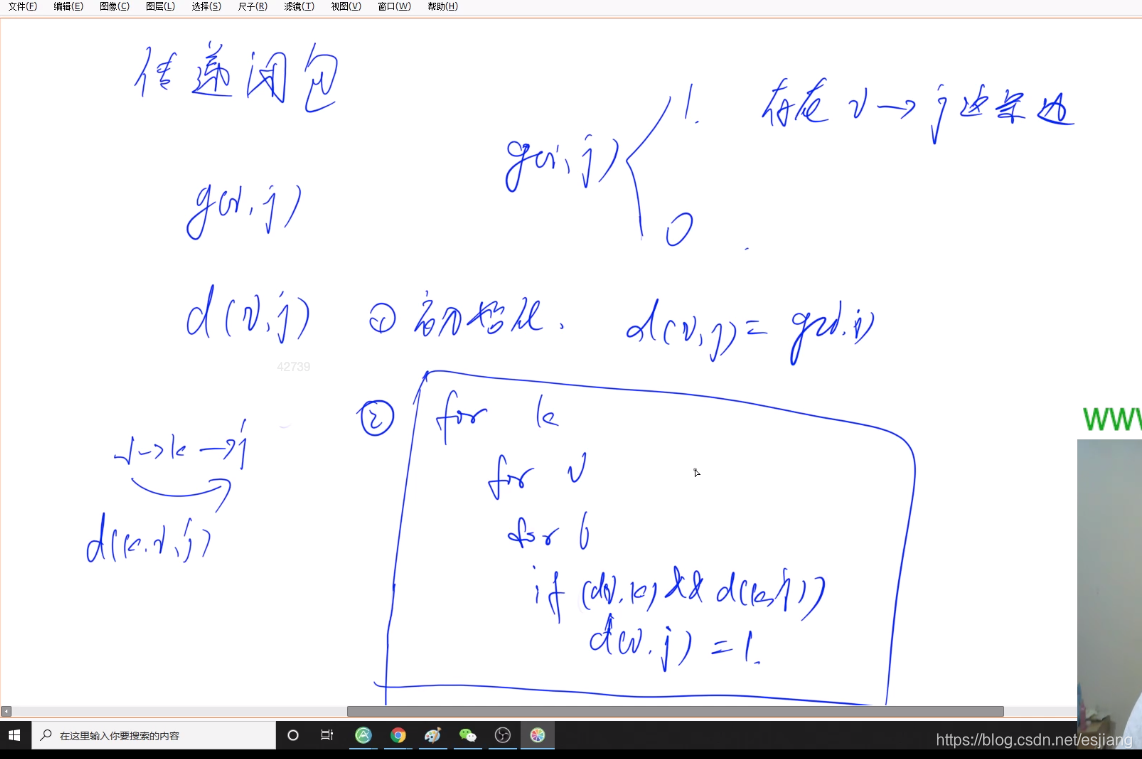 文件(F) 编辑(E) 图像(C) 图层(L) 选择(S) 尺子(R) 滤镜(T) 视图(V) 窗口(W) 帮助(H)
传递闭包
g(i,j) 1. 存在i→j这条边
0
g(i,j)
d(i,j) ① 初始化. d(i,j)=g(i,j)
42739
② for k
i→k→j
for i
d(k,i,j)
for j
if (d(i,k) && d(k,j))
d(i,j)=1.
WWW
在这里输入你要搜索的内容
https://blog.csdn.net/esjiang